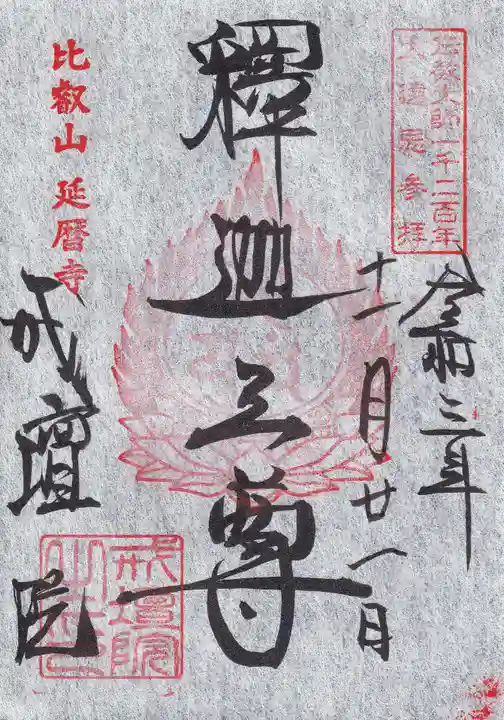 伝教大師一千二百年
大遠忌参拝
令和三年
十一月廿一日
釋迦三尊
比叡山 延暦寺
戒壇院
戒壇院